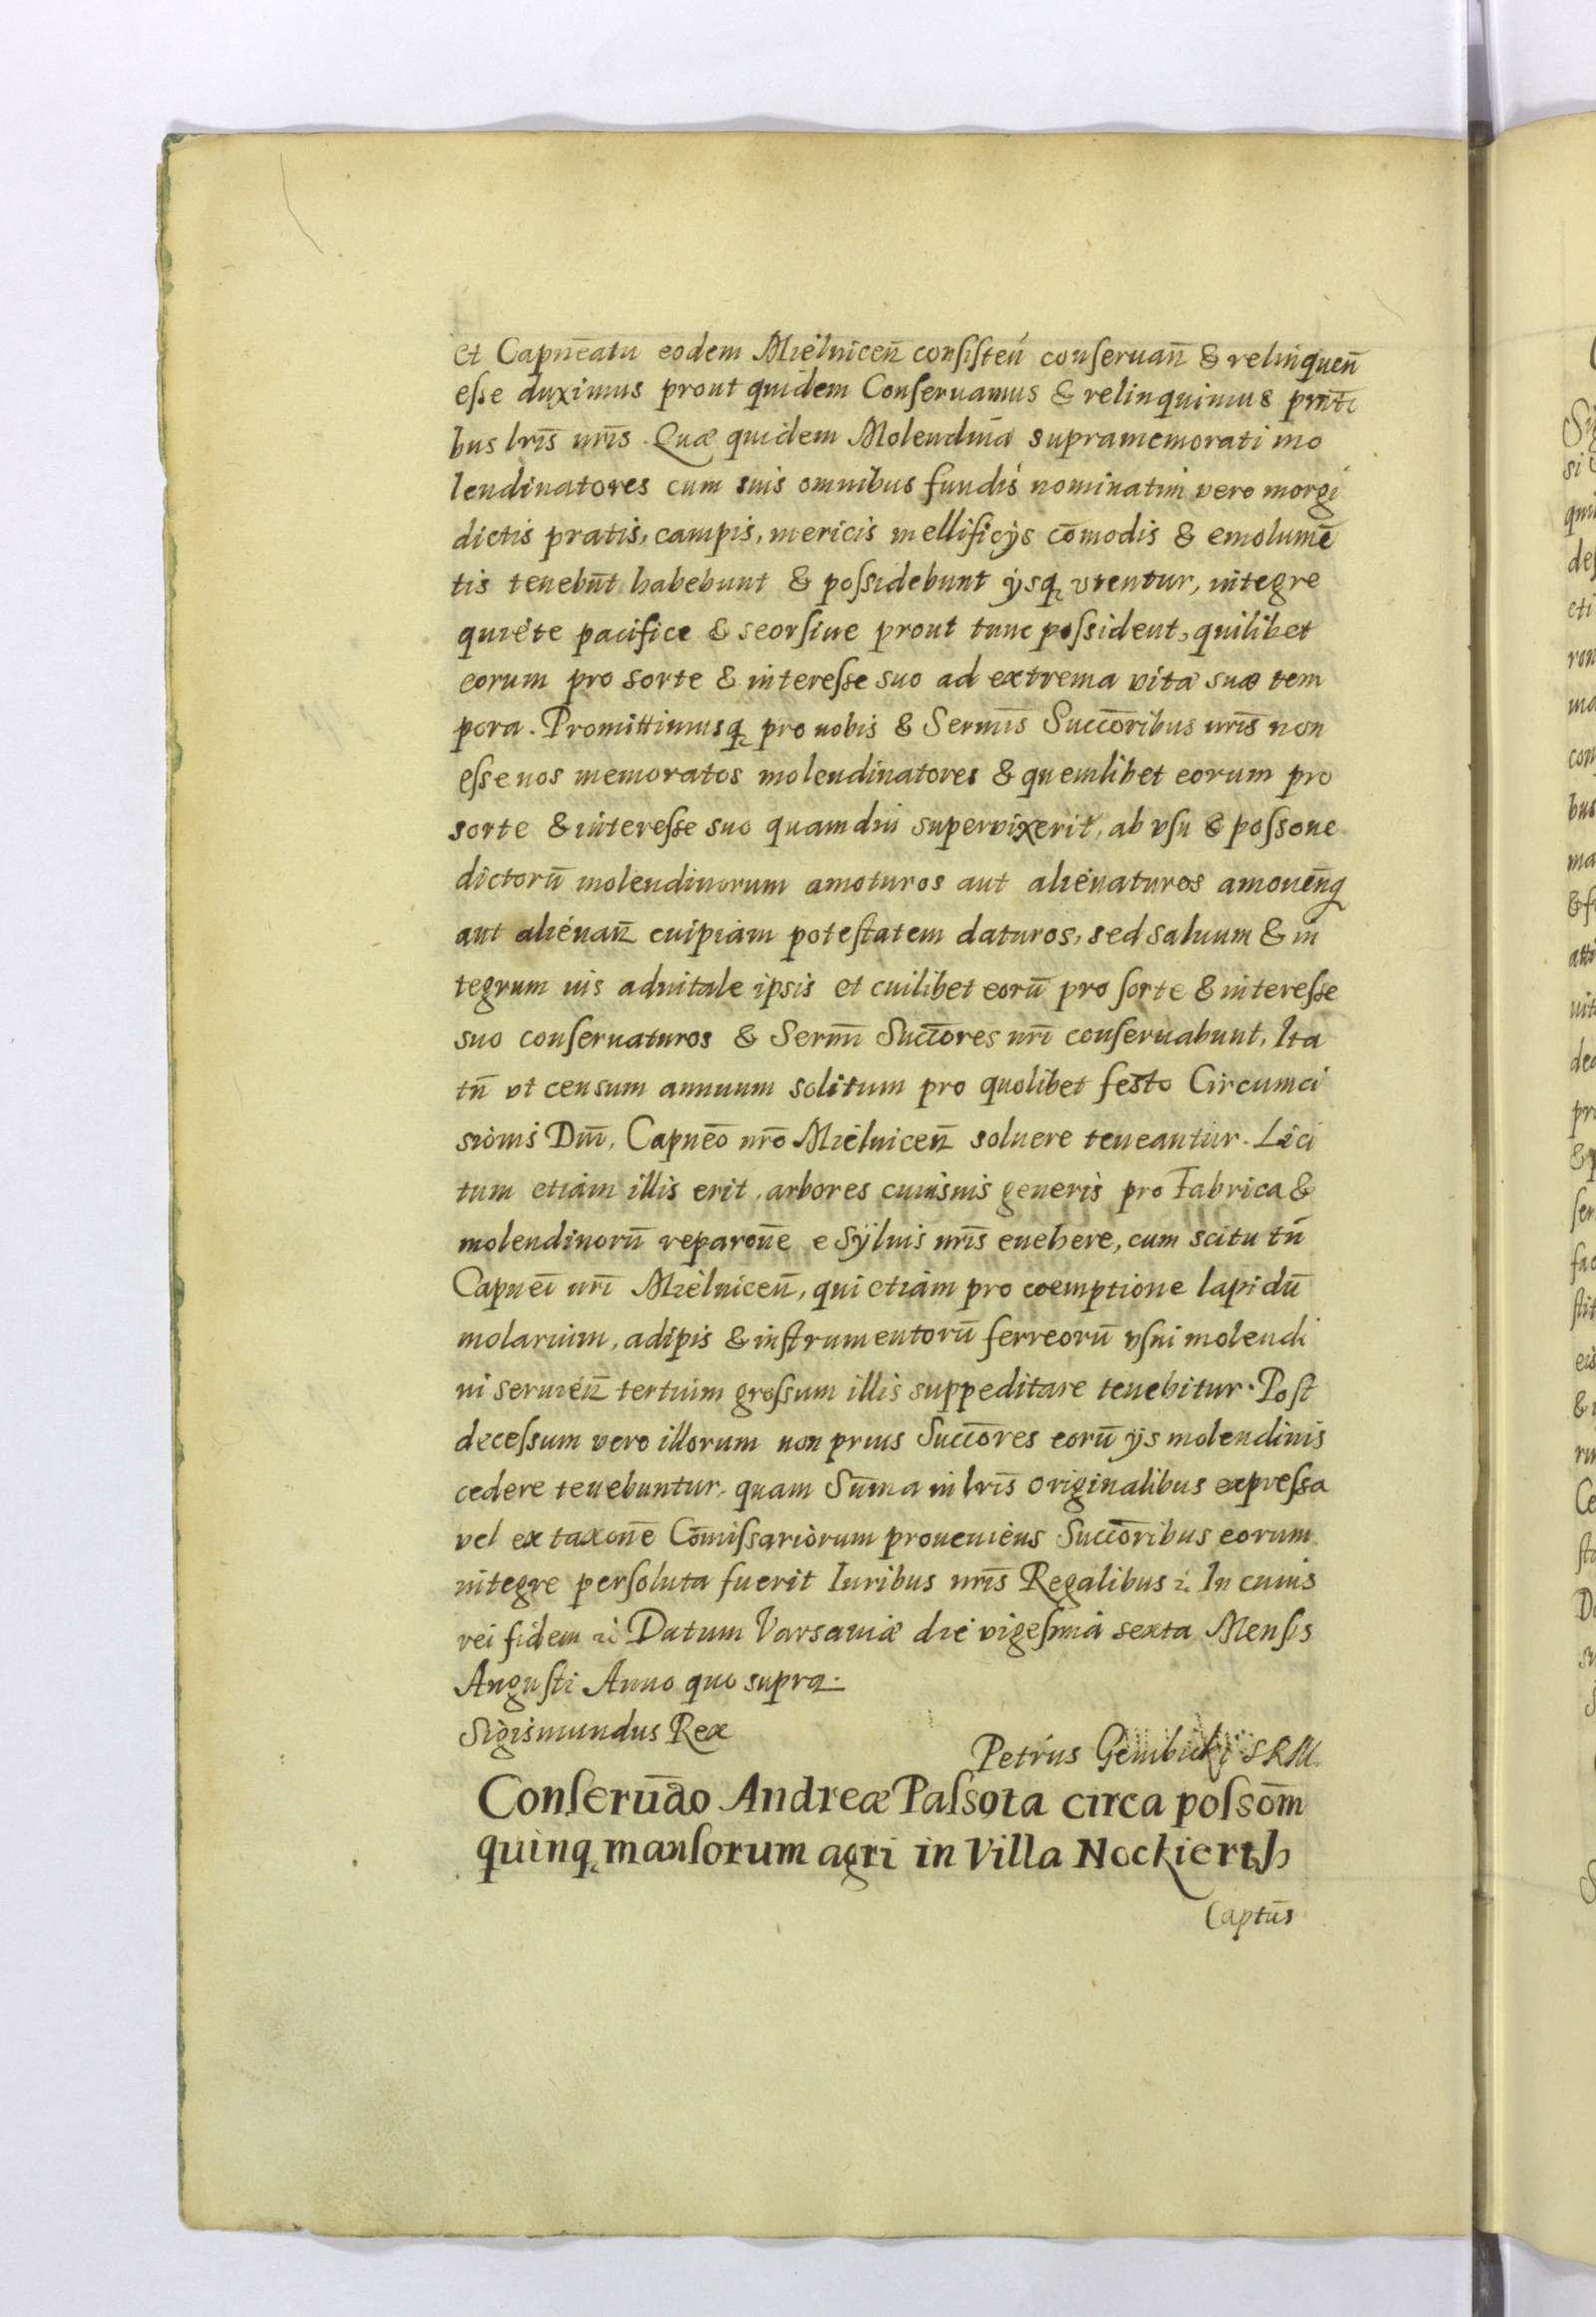 et Capneatu eodem Mielnicen̄ consisten̄ conseruan̄ & relinquen̄
esse duximus prout quidem Conseruamus & relinquimus pnti
bus lris nris. Quæ quidem Molendina supramemorati mo
lendinatores cum suis omnibus fundis nominatim vero morgi
dictis pratis, campis, mericis mellificijs cōmodis & emolumē
tis tenebn̄t habebunt & possidebunt ijsq vtentur, integre
quiete pacifice & seorsiue prout tunc possident, quilibet
eorum pro sorte & interesse suo ad extrema vita suæ tem
pora. Promittimusq pro nobis & Sermis Succōribus nris non
esse nos memoratos molendinatores & quemlibet eorum pro
sorte & interesse suo quamdiu supervixerit, ab vsu & possone
dictorū molendinorum amoturos aut alienaturos amouenq
aut alienan̄ cuipiam potestatem daturos, sed saluum & in
tegrum ius aduitale ipsis et cuilibet eorū pro sorte & interesse
suo conseruaturos & Sermi Succōres nri conseruabunt, Ita
tn̄ vt censum annuum solitum pro quolibet festo Circumci
sionis Dni, Capneo nro Mielnicen̄ soluere teneantur. Lici
tum etiam illis erit, arbores cuiusuis generis pro Fabrica &
molendinorū reparone e syluis nris euehere, cum scitu tn̄
Capnei nri Mielnicen̄, qui etiam pro coemptione lapidū
molarium, adipis & instrumentorū ferreorū vsui molendi
ni seruien̄ tertium grossum illis suppeditare tenebitur. Post
decessum vero illorum non prius Succōres eorū ijs molendinis
cedere tenebuntur, quam Sūma in lris originalibus expressa
vel ex taxone Cōmissariorum proueniens Succōribus eorum
integre persoluta fuerit Iuribus nris Regalibus &c. In cuius
rei fidem &c Datum Varsauiæ die vigesima sexta Mensis
Augusti Anno quo supra.
Sigismundus Rex
Petrus Gembicki SRM.
Conseruāo Andreæ Passota circa possom̄
quinq mansorum agri in Villa Nockierth
Captūs